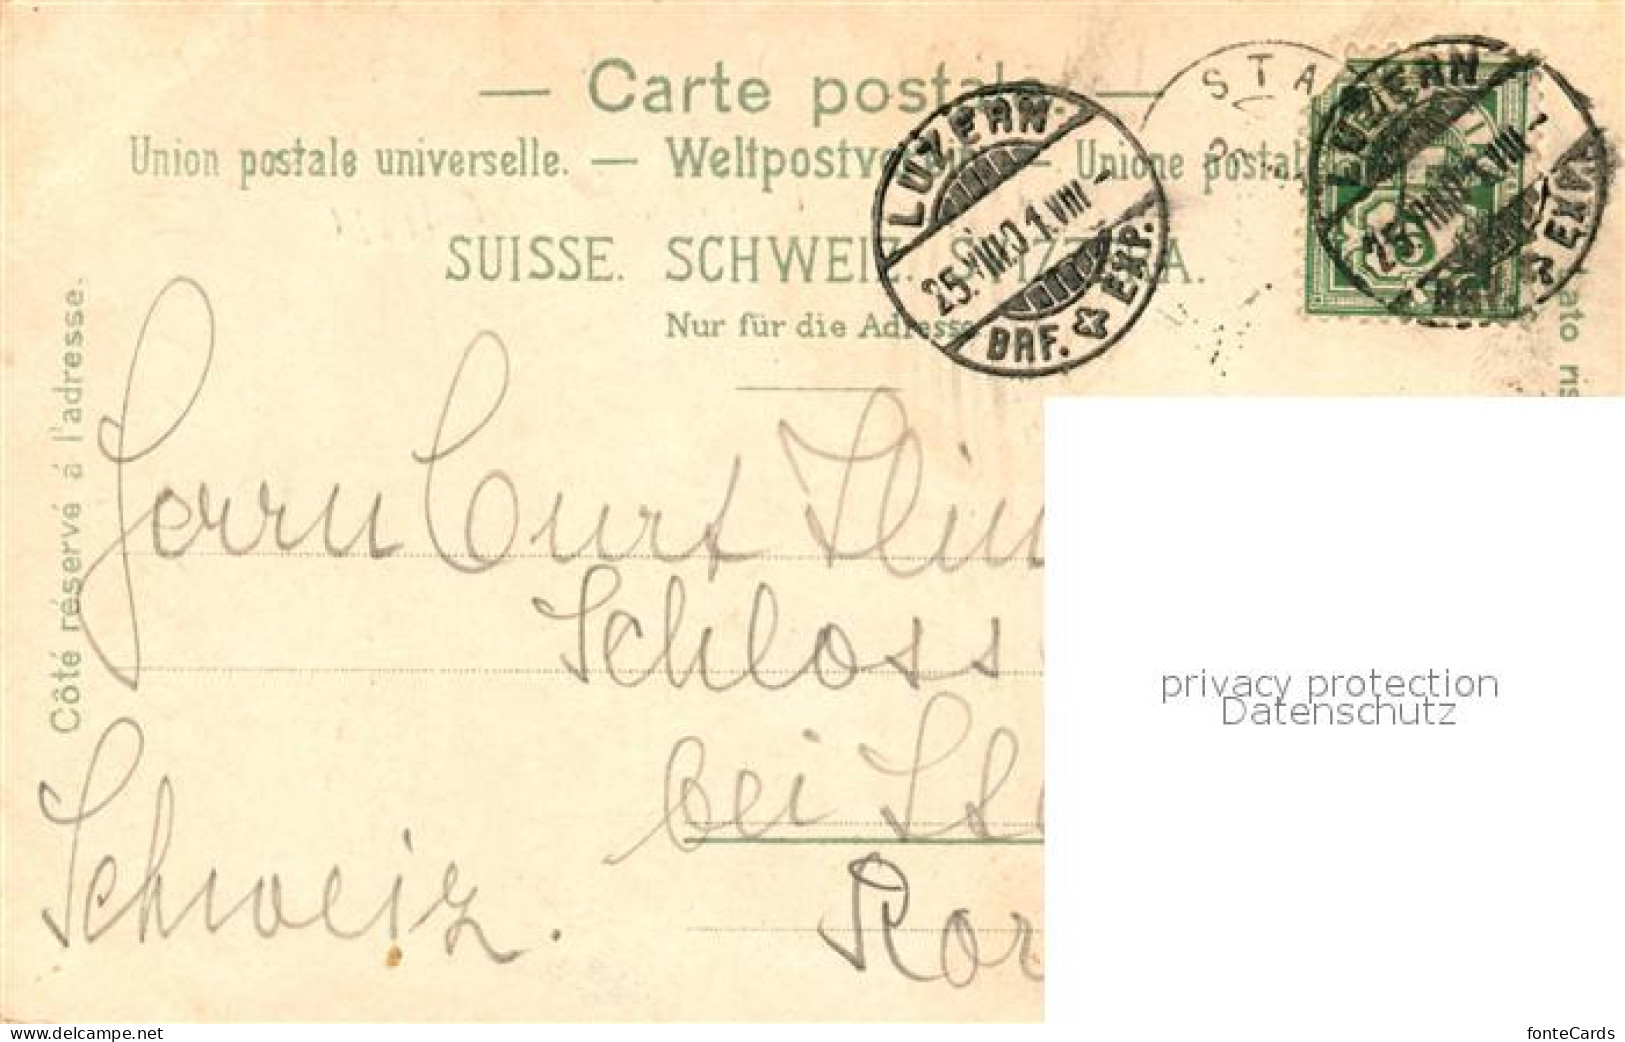 — Carte postale —
Union postale universelle. — Weltpostve — Unione postal
SUISSE. SCHWEIZ. SVIZZERA.
Nur für die Adresse
Côté réservé à l'adresse.
LUZERN
25.VIII.01.VIII-
BRF. EXP.
LUZERN
25.VIII.01.VIII-
STA
Herrn Curt
Schloss
bei
Schweiz.
privacy protection
Datenschutz
www.delcampe.net
fonteCards